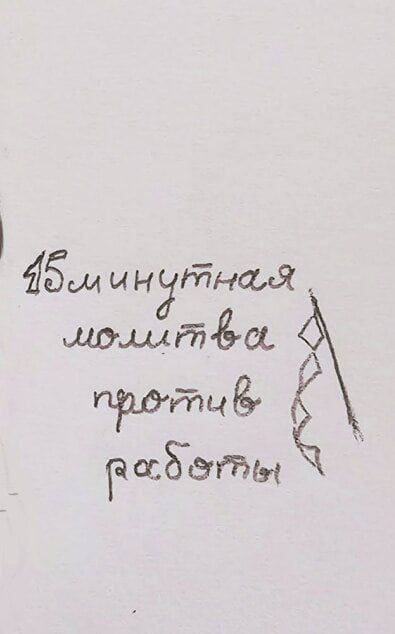 15 минутная
молитва
против
работы